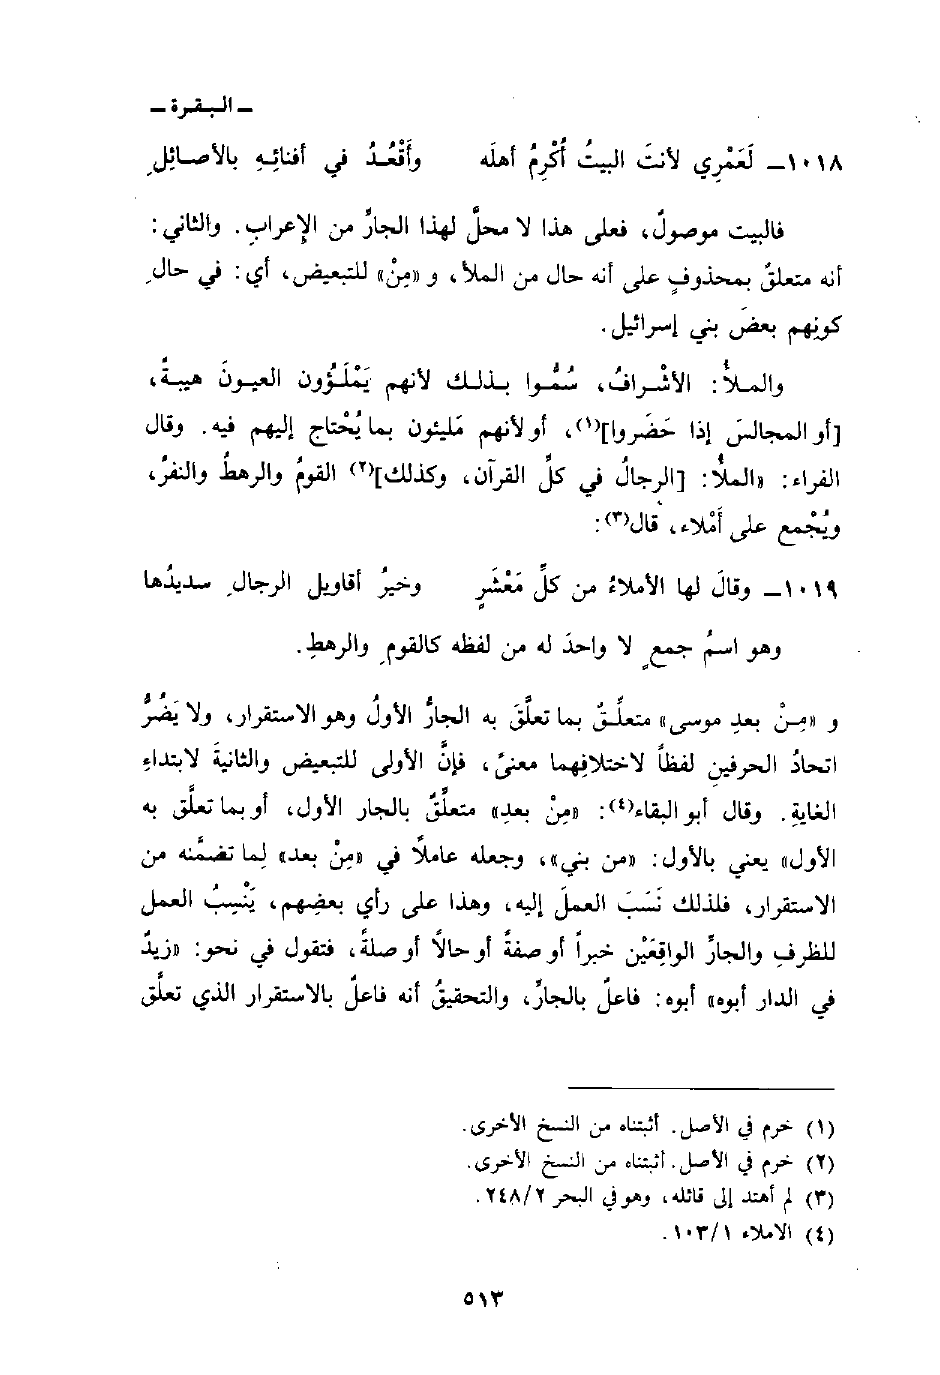 ـ البقرة ـ
١٠١٨ـ لَعَمْرِي لأنتَ البيتُ أُكْرِمُ أهلَه وأَقْعُدُ في أفنائِهِ بالأصائِلِ
فالبيت موصولٌ، فعلى هذا لا محلَّ لهذا الجارِّ من الإِعرابِ. والثاني:
أنه متعلقٌ بمحذوفٍ على أنه حال من الملأ، و «مِنْ» للتبعيض، أي: في حالِ
كونِهم بعضَ بني إسرائيل.
والملأُ: الأشْرافُ، سُمُّوا بذلك لأنهم يَمْلَؤُون العيونَ هيبةً،
[أو المجالسَ إذا حَضَروا](١)، أو لأنهم مَليئون بما يُحْتاج إليهم فيه. وقال
الفراء: «الملأُ: [الرجالُ في كلِّ القرآن، وكذلك](٢) القومُ والرهطُ والنفرُ،
ويُجْمع على أَمْلاء، قال(٣):
١٠١٩ـ وقالَ لها الأملاءُ من كلِّ مَعْشَرٍ وخيرُ أقاويل الرجالِ سديدُها
وهو اسمُ جمعٍ لا واحدَ له من لفظه كالقومِ والرهطِ.
و «مِنْ بعدِ موسى» متعلِّقٌ بما تعلَّقَ به الجارُّ الأولُ وهو الاستقرار، ولا يَضُرُّ
اتحادُ الحرفينِ لفظاً لاختلافِهما معنىً، فإنَّ الأولى للتبعيض والثانيةَ لابتداءِ
الغايةِ. وقال أبو البقاء(٤): «مِنْ بعدِ» متعلِّقٌ بالجار الأول، أو بما تعلَّق به
الأول» يعني بالأول: «من بني»، وجعله عاملاً في «مِنْ بعد» لِما تضمَّنه من
الاستقرار، فلذلك نَسَبَ العملَ إليه، وهذا على رأي بعضِهم، يَنْسِبُ العمل
للظرفِ والجارِّ الواقِعَيْن خبراً أو صفةً أو حالاً أو صلةً، فتقول في نحو: «زيدٌ
في الدار أبوه» أبوه: فاعلٌ بالجارِّ، والتحقيقُ أنه فاعلٌ بالاستقرار الذي تعلَّق
(١) خرم في الأصل. أثبتناه من النسخ الأخرى.
(٢) خرم في الأصل. أثبتناه من النسخ الأخرى.
(٣) لم أهتد إلى قائله، وهو في البحر ٢/٢٤٨.
(٤) الاملاء ١/١٠٣.
٥١٣